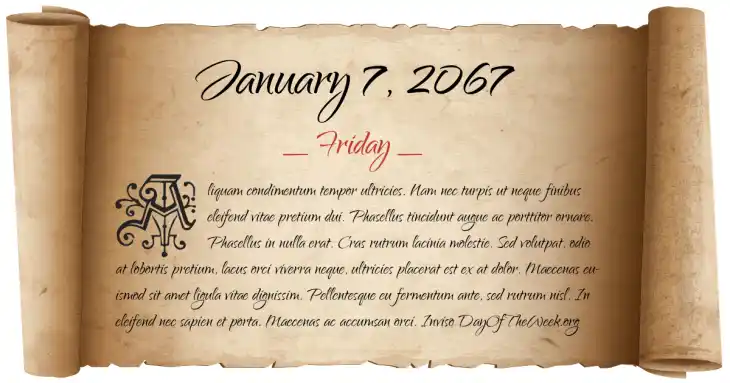 January 7, 2067
_ Friday _
Aliquam condimentum tempor ultricies. Nam nec turpis ut neque finibus
eleifend vitae pretium dui. Phasellus tincidunt augue ac porttitor ornare.
Phasellus in nulla erat. Cras rutrum lacinia molestie. Sed volutpat, odio
at lobortis pretium, lacus orci viverra neque, ultricies placerat est ex at dolor. Maecenas eu-
ismod sit amet ligula vitae dignissim. Pellentesque eu fermentum ante, sed rutrum nisl. In
eleifend nec sapien et porta. Maecenas ac accumsan orci. Inviso DayOfTheWeek.org